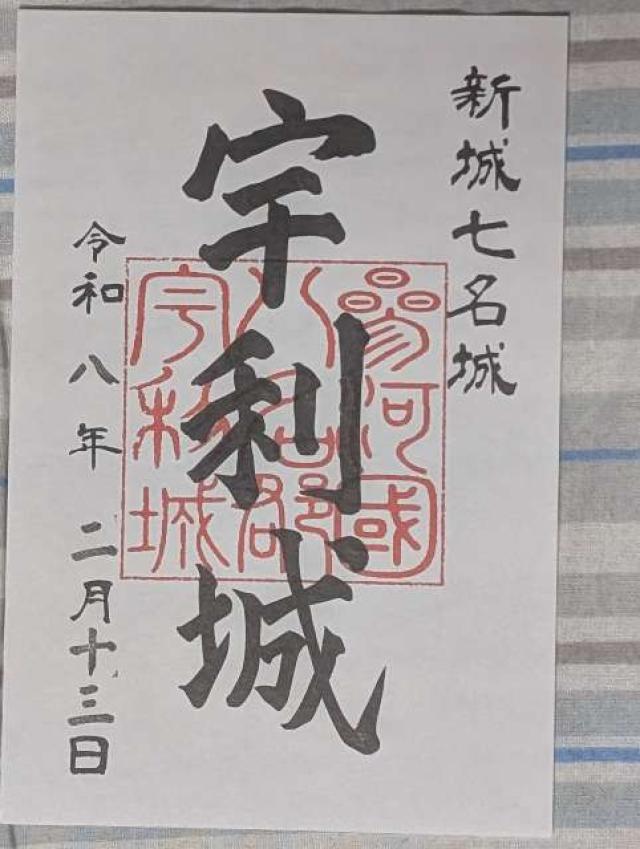 新城七名城
宇利城
參河國
八名郡
宇利城
令和八年 二月十三日